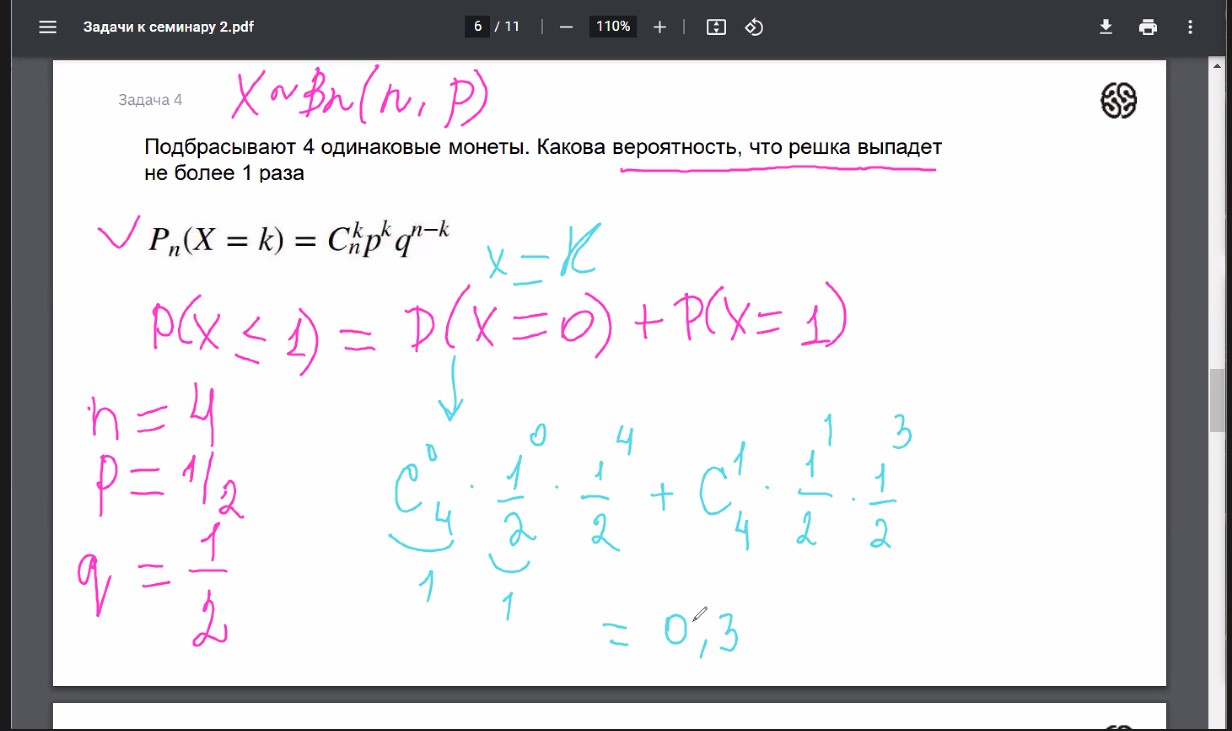 Задачи к семинару 2.pdf 6 / 11 110%
Задача 4 X ~ Bn(n, p)
Подбрасывают 4 одинаковые монеты. Какова вероятность, что решка выпадет
не более 1 раза
Pₙ(X = k) = Cₙᵏpᵏqⁿ⁻ᵏ
x = K
P(X ≤ 1) = P(X = 0) + P(X = 1)
n = 4
p = 1/2
q = 1/2
C₄⁰ · 1/2⁰ · 1/2⁴ + C₄¹ · 1/2¹ · 1/2³
1 1
= 0,3